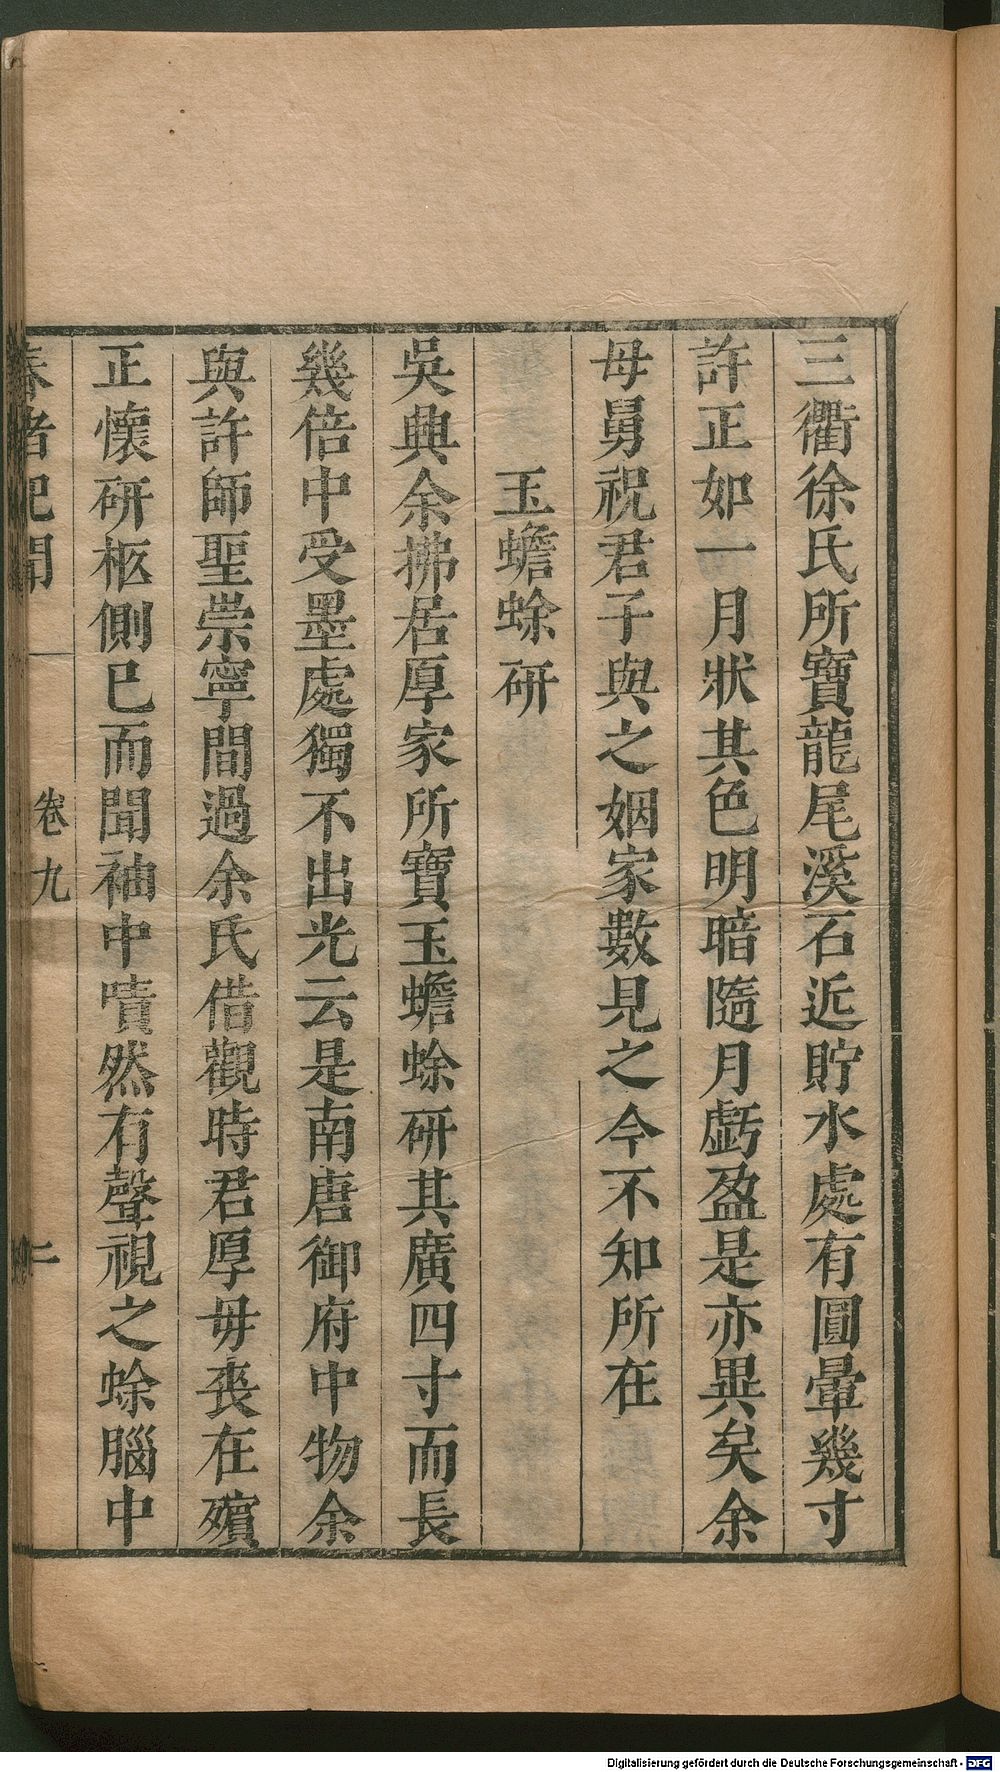 三衢徐氏所寶龍尾溪石近貯水處有圓暈幾寸
許正如一月狀其色明暗隨月虧盈是亦異矣余
母舅祝君子與之姻家數見之今不知所在
玉蟾蜍研
吳興余拂居厚家所寶玉蟾蜍研其廣四寸而長
幾倍中受墨處獨不出光云是南唐御府中物余
與許師聖崇寧間過余氏借觀時君厚毋喪在殯
正懷研柩側已而聞袖中嘖然有聲視之蜍腦中
春渚紀聞
卷九
二
Digitalisierung gefördert durch die Deutsche Forschungsgemeinschaft - DFG